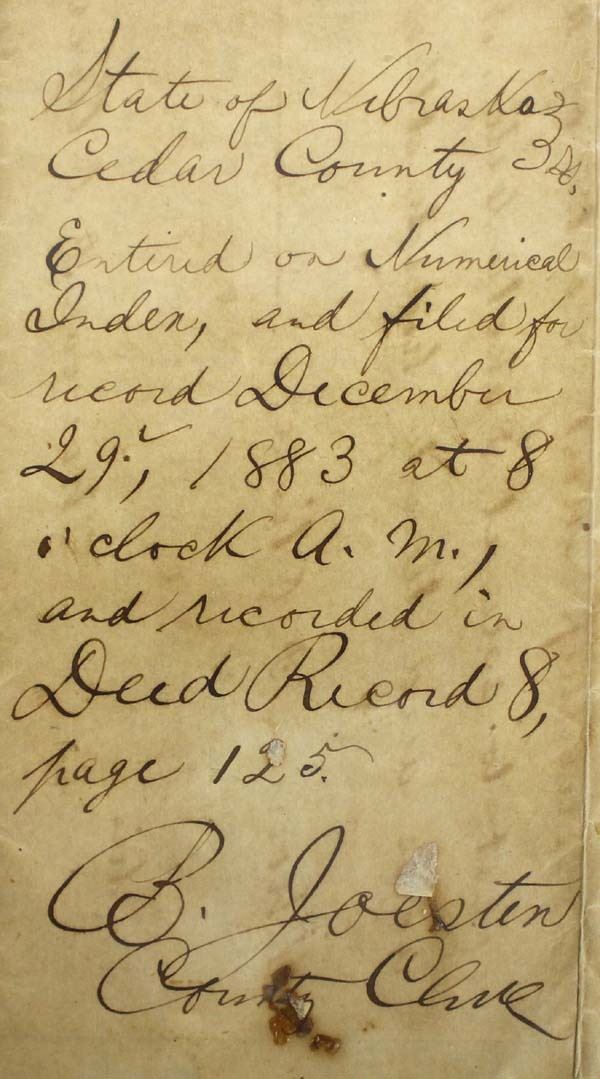 State of Nebraska }
Cedar County } SS.
Entered on Numerical
Index, and filed for
record December
29", 1883 at 8
o'clock A. M.,
and recorded in
Deed Record 8,
page 125.
B. Joesten
County Clerk